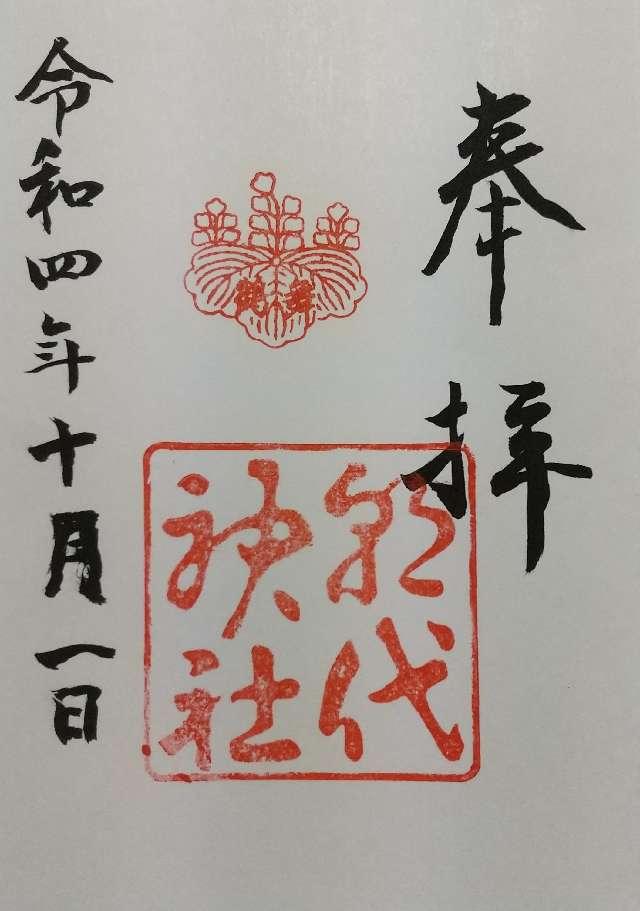 奉拝
舞鶴
朝代
神社
令和四年十月一日